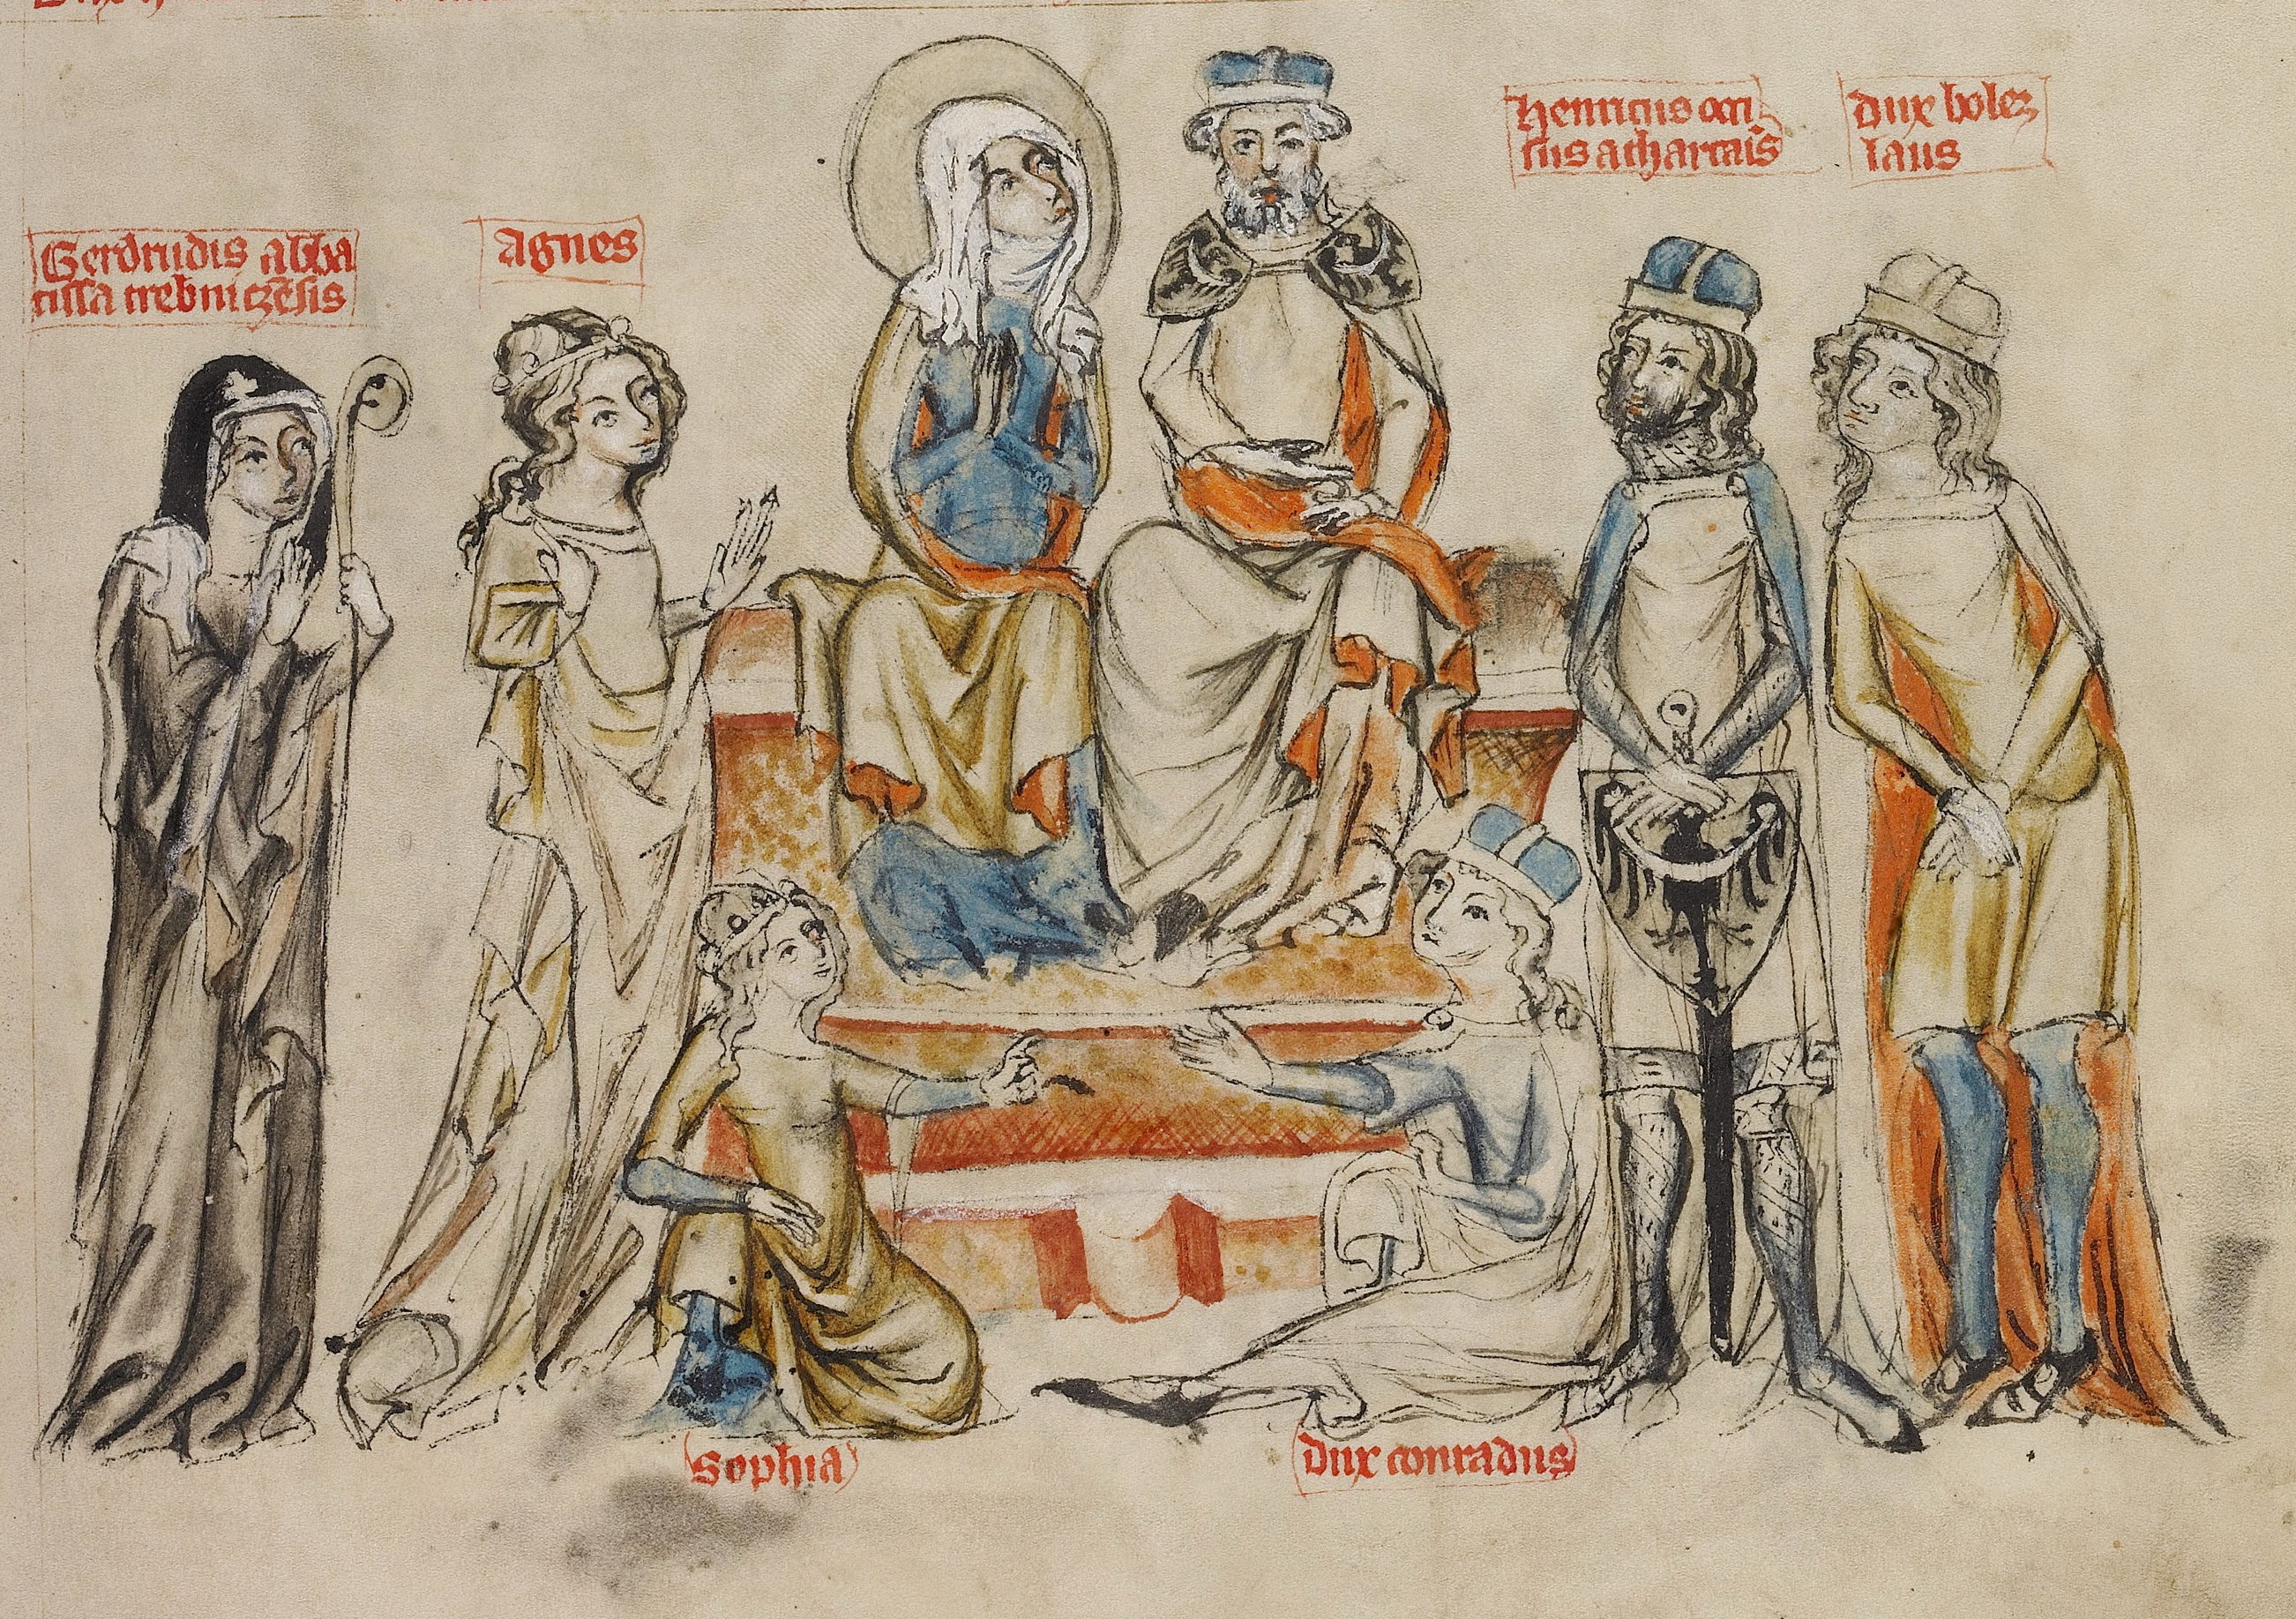 Gerdrudis abba
tissa trebniczēsis
Agnes
henricus occi
sus a thartaīs
dux bolez
laus
Sophia
dux conradus